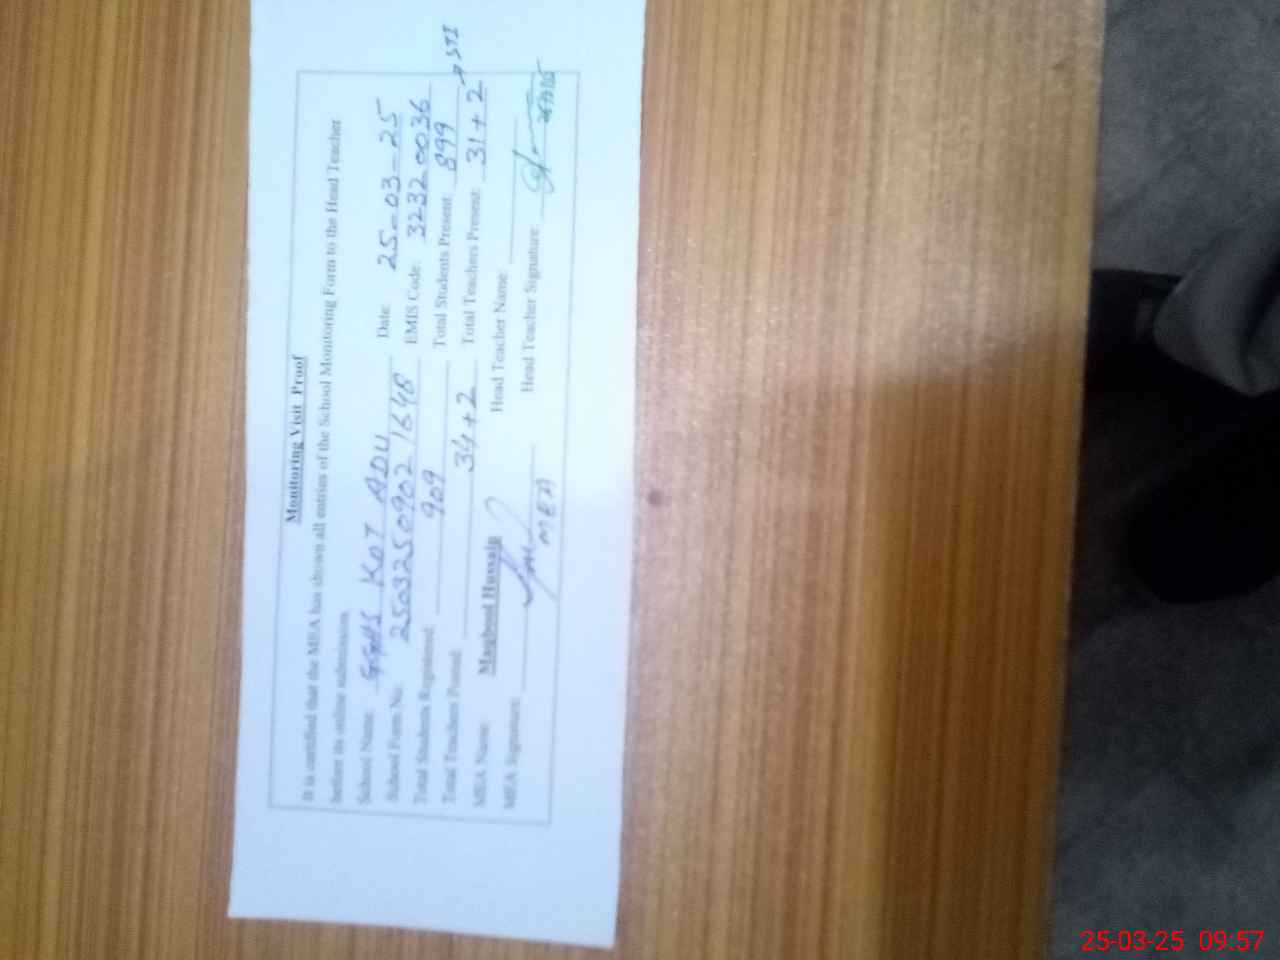 Monitoring Visit Proof
It is certified that the MEA has shown all entries of the School Monitoring Form to the Head Teacher
before its online submission.
School Name: KOT ADU Date: 25-03-25
School Form No: 2503250902 1648 EMIS Code: 32320036
Total Students Registered: 909 Total Students Present: 899
Total Teachers Posted: 34+2 Total Teachers Present: 31+2 → STI
MEA Name: Maqbool Hussain Head Teacher Name:
MEA Signature: Head Teacher Signature
MEA
25-03-25 09:57